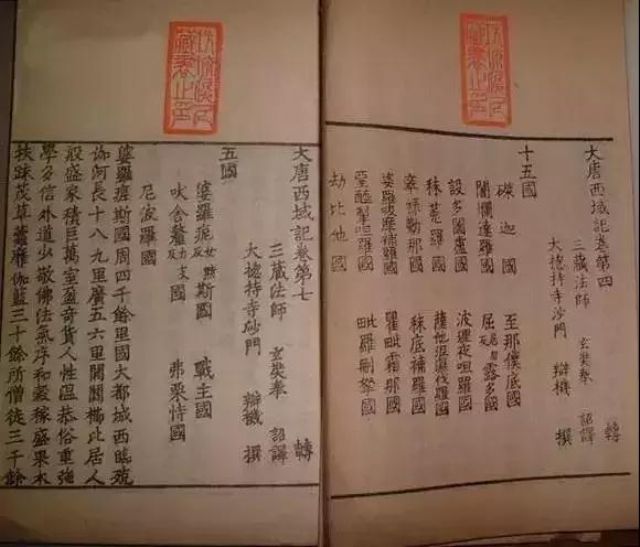 大唐西域記卷第四 轉
三藏法師 玄奘奉 詔譯
大總持寺沙門 辯機 撰
十五國
磔迦國 至那僕底國
闍爛達羅國 屈居勿反露多國
設多圖盧國 波理夜呾羅國
秣菟羅國 薩他泥濕伐羅國
窣祿勤那國 秣底補羅國
婆羅吸摩補羅國 瞿毗霜那國
堊醯掣呾羅國 毗羅刪拏國
劫比他國
大唐西域記卷第七 轉
三藏法師 玄奘奉 詔譯
大總持寺沙門 辯機 撰
五國
婆羅痆女黠反斯國 戰主國
吠舍釐力支反國 弗栗恃國
尼波羅國
婆羅痆斯國周四千餘里國大都城西臨殑
伽河長十八九里廣五六里閭閻櫛比居人
殷盛家積巨萬室盈奇貨人性溫恭俗重強
學多信外道少敬佛法氣序和穀稼盛果木
扶踈茂草靡伽藍三十餘所僧徒三千餘